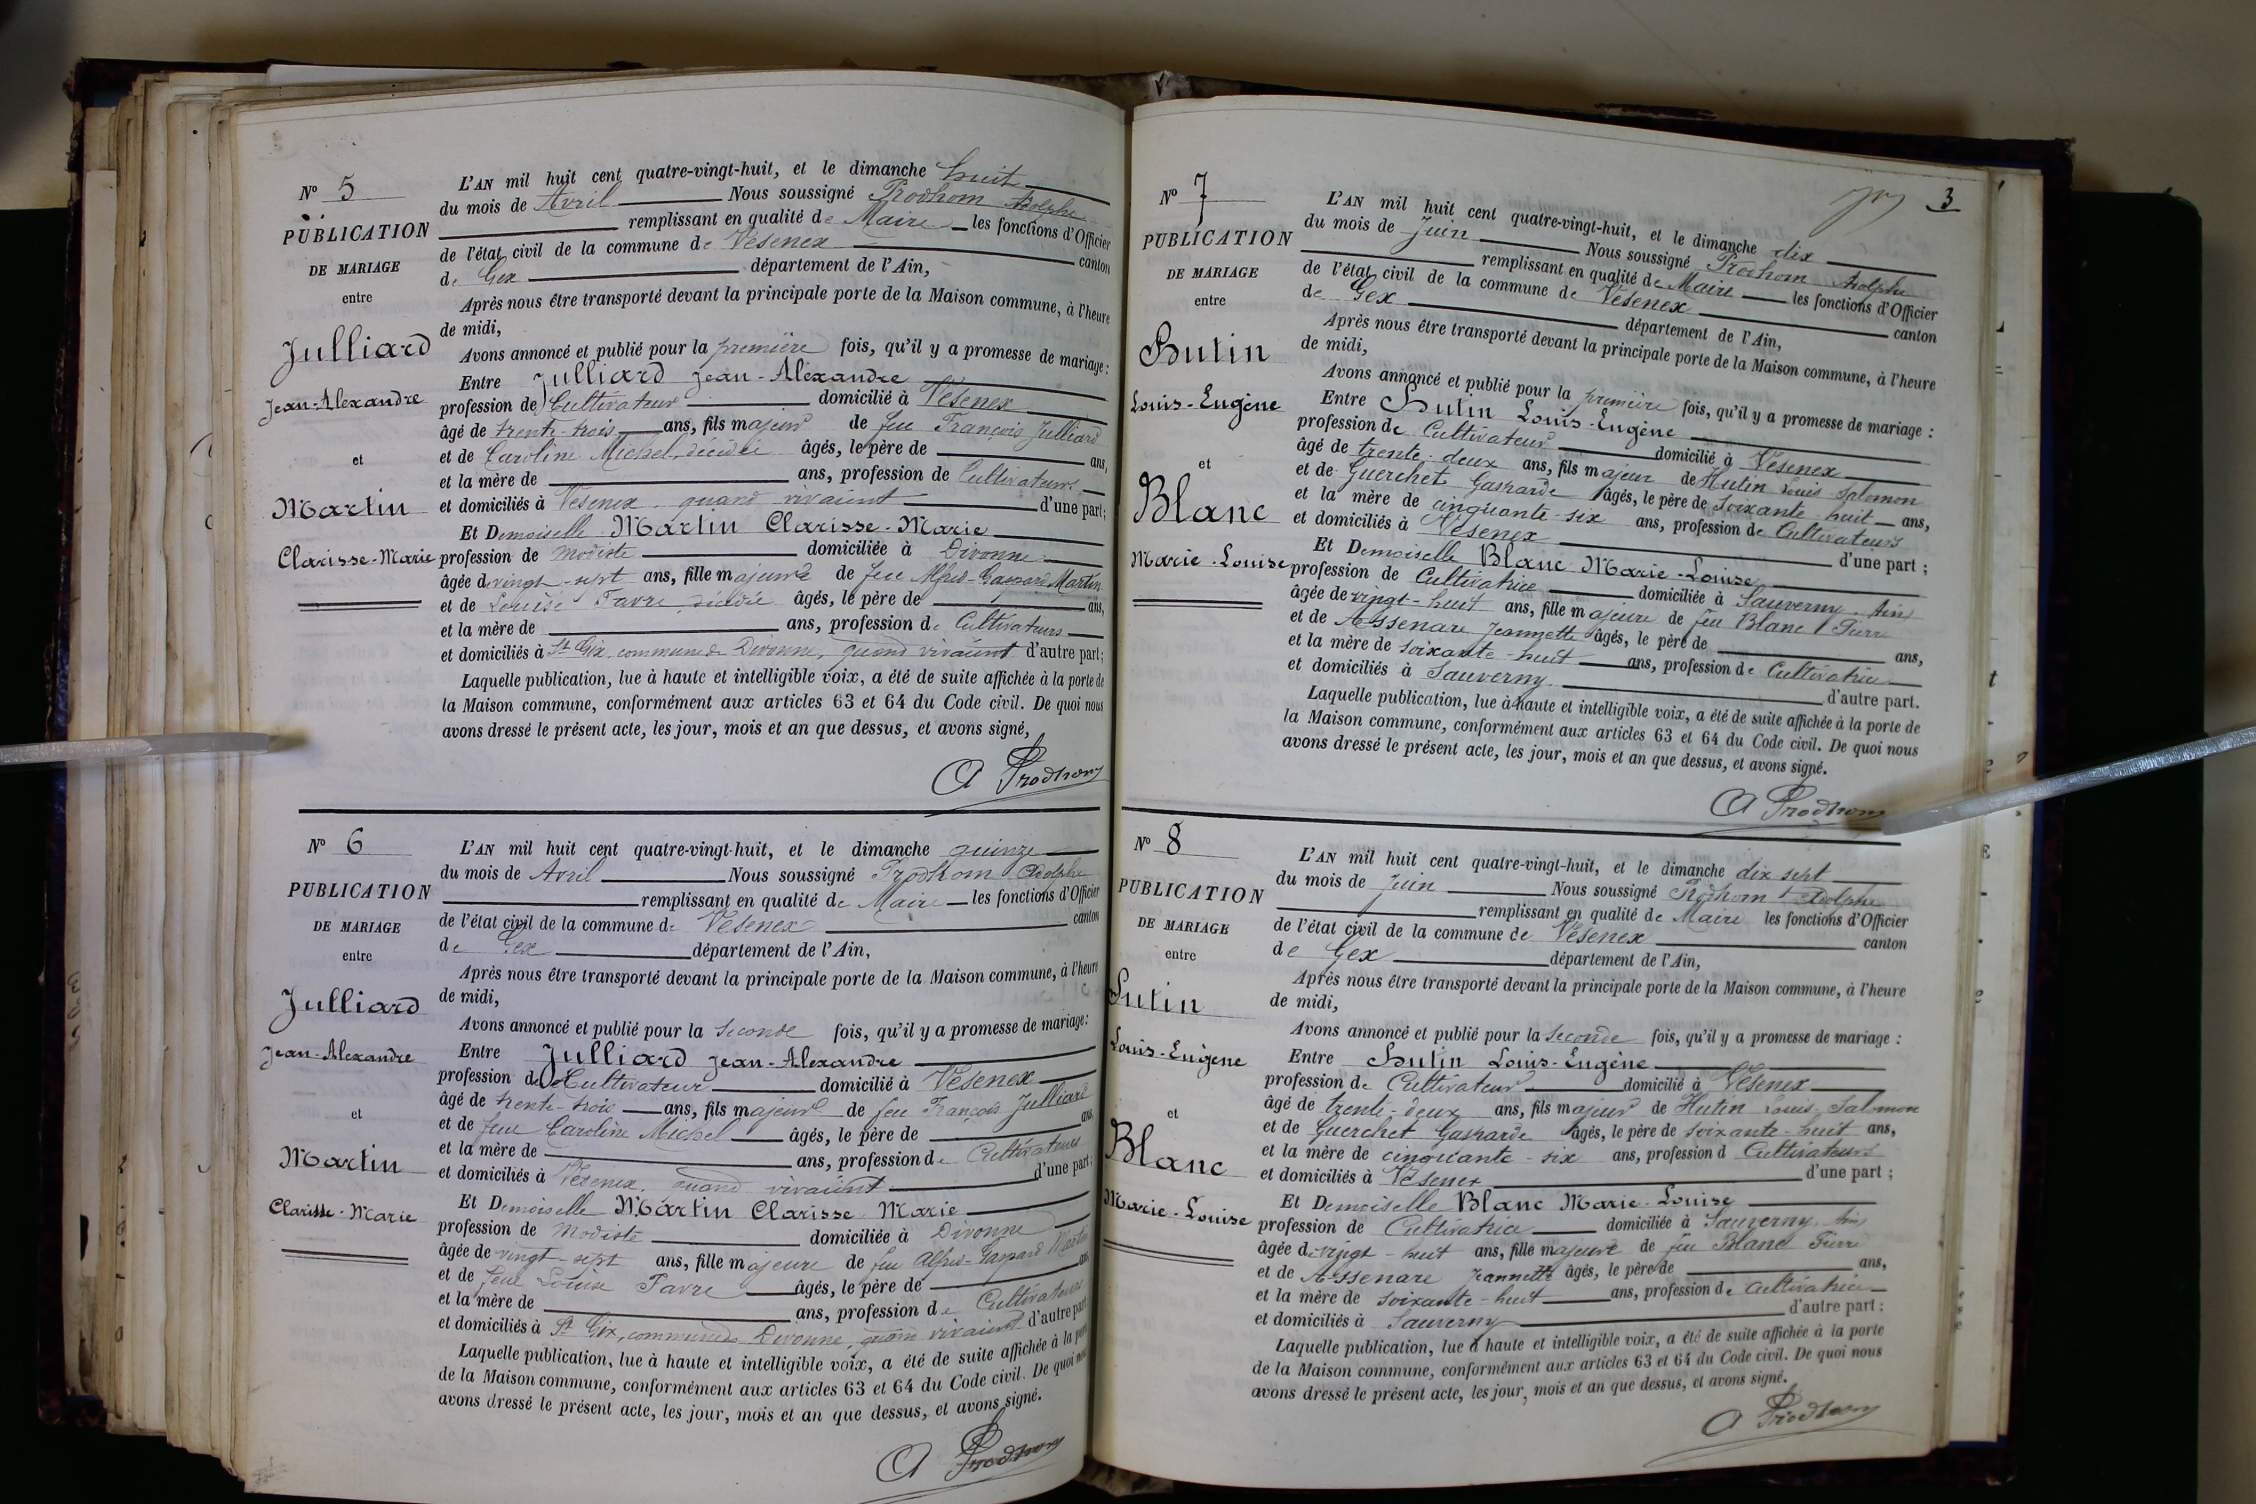 Nº 5
PUBLICATION
DE MARIAGE
entre
Julliard
Jean-Alexandre
et
Martin
Clarisse-Marie
L'AN mil huit cent quatre-vingt-huit, et le dimanche huit
du mois de Avril Nous soussigné Prodhom Adolphe
remplissant en qualité de Maire les fonctions d'Officier
de l'état civil de la commune de Vésenex canton
de Gex département de l'Ain,
Après nous être transporté devant la principale porte de la Maison commune, à l'heure
de midi,
Avons annoncé et publié pour la première fois, qu'il y a promesse de mariage :
Entre Julliard Jean-Alexandre
profession de Cultivateur domicilié à Vésenex
âgé de trente-trois ans, fils majeur de feu François Julliard
et de Caroline Michel, décédée âgés, le père de ans,
et la mère de ans, profession de Cultivateurs
et domiciliés à Vésenex quand vivaient d'une part;
Et Demoiselle Martin Clarisse-Marie
profession de Modiste domiciliée à Divonne
âgée de vingt-sept ans, fille majeure de feu Alfred-Gaspard Martin
et de Louise Favre, décédée âgés, le père de ans,
et la mère de ans, profession de Cultivateurs
et domiciliés à St Gix, commune de Divonne, quand vivaient d'autre part;
Laquelle publication, lue à haute et intelligible voix, a été de suite affichée à la porte de
la Maison commune, conformément aux articles 63 et 64 du Code civil. De quoi nous
avons dressé le présent acte, les jour, mois et an que dessus, et avons signé,
A Prodhom
Nº 6
PUBLICATION
DE MARIAGE
entre
Julliard
Jean-Alexandre
et
Martin
Clarisse-Marie
L'AN mil huit cent quatre-vingt-huit, et le dimanche quinze
du mois de Avril Nous soussigné Prodhom Adolphe
remplissant en qualité de Maire les fonctions d'Officier
de l'état civil de la commune de Vésenex canton
de Gex département de l'Ain,
Après nous être transporté devant la principale porte de la Maison commune, à l'heure
de midi,
Avons annoncé et publié pour la seconde fois, qu'il y a promesse de mariage :
Entre Julliard Jean-Alexandre
profession de Cultivateur domicilié à Vésenex
âgé de trente-trois ans, fils majeur de feu François Julliard
et de feue Caroline Michel âgés, le père de ans
et la mère de ans, profession de Cultivateurs
et domiciliés à Vésenex, quand vivaient d'une part;
Et Demoiselle Martin Clarisse Marie
profession de Modiste domiciliée à Divonne
âgée de vingt-sept ans, fille majeure de feu Alfred-Gaspard Martin
et de feue Louise Favre âgés, le père de ans
et la mère de ans, profession de Cultivateurs
et domiciliés à St Gix, commune de Divonne, quand vivaient d'autre part
Laquelle publication, lue à haute et intelligible voix, a été de suite affichée à la porte
de la Maison commune, conformément aux articles 63 et 64 du Code civil. De quoi nous
avons dressé le présent acte, les jour, mois et an que dessus, et avons signé.
A Prodhom
3
Nº 7
PUBLICATION
DE MARIAGE
entre
Hutin
Louis-Eugène
et
Blanc
Marie-Louise
L'AN mil huit cent quatre-vingt-huit, et le dimanche dix
du mois de Juin Nous soussigné Prodhom Adolphe
remplissant en qualité de Maire les fonctions d'Officier
de l'état civil de la commune de Vésenex canton
de Gex département de l'Ain,
Après nous être transporté devant la principale porte de la Maison commune, à l'heure
de midi,
Avons annoncé et publié pour la première fois, qu'il y a promesse de mariage :
Entre Hutin Louis-Eugène
profession de Cultivateur domicilié à Vésenex
âgé de trente-deux ans, fils majeur de Hutin Louis Salomon
et de Guerchet Gasparde âgés, le père de soixante-huit ans,
et la mère de cinquante-six ans, profession de Cultivateurs
et domiciliés à Vésenex d'une part ;
Et Demoiselle Blanc Marie-Louise
profession de Cultivatrice domiciliée à Sauverny Ain
âgée de vingt-huit ans, fille majeure de feu Blanc Pierre
et de Assenare Jeannette âgés, le père de ans,
et la mère de soixante-huit ans, profession de Cultivatrice
et domiciliés à Sauverny d'autre part.
Laquelle publication, lue à haute et intelligible voix, a été de suite affichée à la porte de
la Maison commune, conformément aux articles 63 et 64 du Code civil. De quoi nous
avons dressé le présent acte, les jour, mois et an que dessus, et avons signé.
A Prodhom
Nº 8
PUBLICATION
DE MARIAGE
entre
Hutin
Louis-Eugène
et
Blanc
Marie-Louise
L'AN mil huit cent quatre-vingt-huit, et le dimanche dix sept
du mois de Juin Nous soussigné Prodhom Adolphe
remplissant en qualité de Maire les fonctions d'Officier
de l'état civil de la commune de Vésenex canton
de Gex département de l'Ain,
Après nous être transporté devant la principale porte de la Maison commune, à l'heure
de midi,
Avons annoncé et publié pour la seconde fois, qu'il y a promesse de mariage :
Entre Hutin Louis-Eugène
profession de Cultivateur domicilié à Vésenex
âgé de trente-deux ans, fils majeur de Hutin Louis-Salomon
et de Guerchet Gasparde âgés, le père de soixante-huit ans,
et la mère de cinquante-six ans, profession d Cultivateurs
et domiciliés à Vésenex d'une part ;
Et Demoiselle Blanc Marie-Louise
profession de Cultivatrice domiciliée à Sauverny Ain
âgée de vingt-huit ans, fille majeure de feu Blanc Pierre
et de Assenare Jeannette âgés, le père de ans,
et la mère de soixante-huit ans, profession de cultivatrice
et domiciliés à Sauverny d'autre part :
Laquelle publication, lue à haute et intelligible voix, a été de suite affichée à la porte
de la Maison commune, conformément aux articles 63 et 64 du Code civil. De quoi nous
avons dressé le présent acte, les jour, mois et an que dessus, et avons signé.
A Prodhom